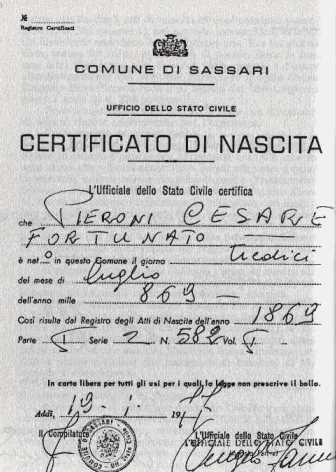 №
Registro Certificati
COMUNE DI SASSARI
UFFICIO DELLO STATO CIVILE
CERTIFICATO DI NASCITA
L'Ufficiale dello Stato Civile certifica
che PIERONI CESARE
FORTUNATO
è nato in questo Comune il giorno tredici
del mese di luglio
dell'anno mille 869
Così risulta dal Registro degli Atti di Nascita dell'anno 1869
Parte I Serie 2 N. 582 Vol. I
In carta libera per tutti gli usi per i quali la legge non prescrive il bollo.
Addì, 19-1-19
Il Compilatore
L'Ufficiale dello Stato Civile
L'UFFICIALE DELLO STATO CIVILE